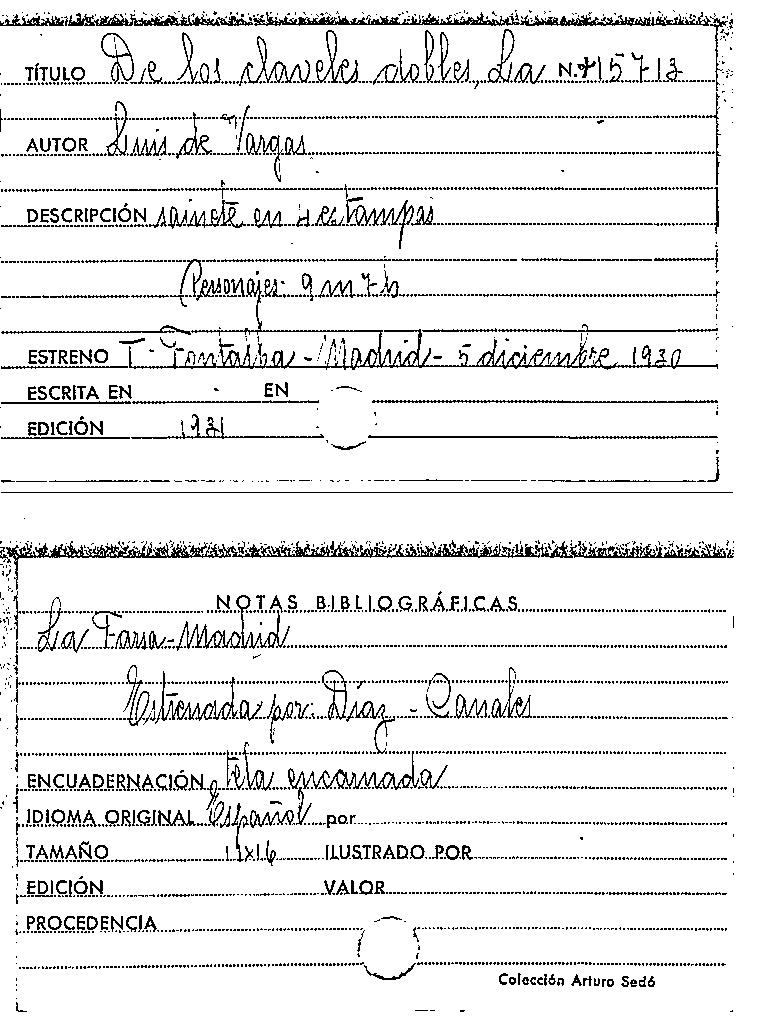 TÍTULO De los claveles dobles, La N.º 15713
AUTOR Luis de Vargas
DESCRIPCIÓN sainete en 4 estampas
Personajes: 9 m 7 h
ESTRENO T. Fontalba - Madrid - 5 diciembre 1930
ESCRITA EN EN
EDICIÓN 1931
NOTAS BIBLIOGRÁFICAS
La Farsa - Madrid
Estrenada por: Díaz - Canales
ENCUADERNACIÓN tela encarnada
IDIOMA ORIGINAL Español por
TAMAÑO 11x16 ILUSTRADO POR
EDICIÓN VALOR
PROCEDENCIA
Colección Arturo Sedó